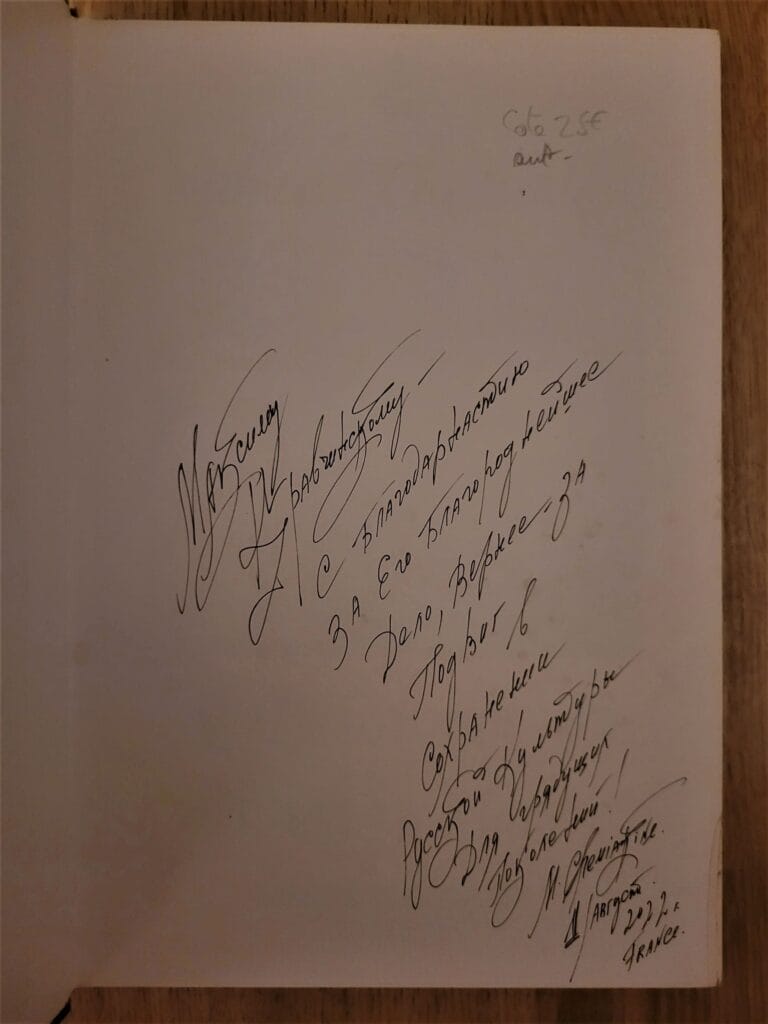 Cote 25€
aut -
Максиму
Кравчинскому -
С Благодарностию
За Его Благороднейшее
Дело, Вернее - За
Подвиг в
Сохранении
Русской Культуры
Для грядущих
Поколений!
M. Chemiakine.
Август.
2022 г.
France.